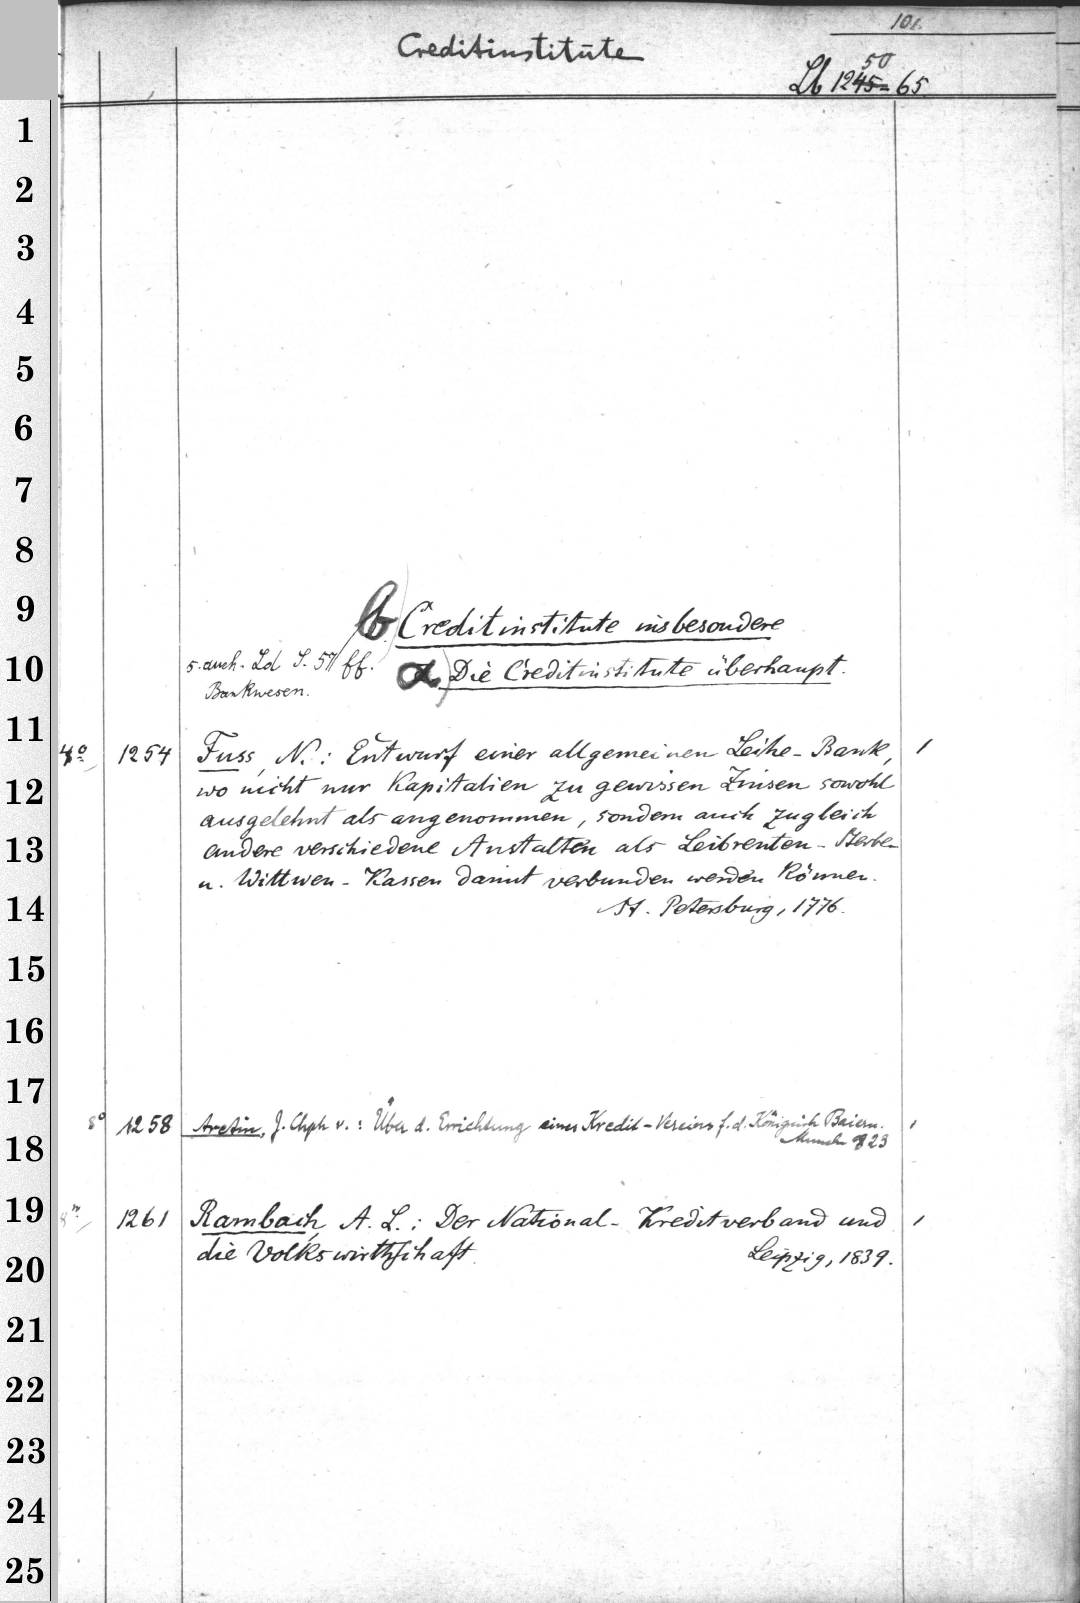 101.
Creditinstitute
50
Lb 1245-65.
1
2
3
4
5
6
7
8
9
b.) Creditinstitute insbesondere
10
s. auch. Ld S. 57 ff.
α.) Die Creditinstitute überhaupt.
Bankwesen.
11
4° 1254 Fuss, N.: Entwurf einer allgemeinen Leihe-Bank,
12
wo nicht nur Kapitalien zu gewissen Zinsen sowohl
ausgelehnt als angenommen, sondern auch zugleich
13
andere verschiedene Anstalten als Leibrenten- Sterbe-
u. Wittwen-Kassen damit verbunden werden können.
14
St. Petersburg, 1776.
15
16
17
8° 1258 Aretin, J. Chph v.: Über d. Errichtung eines Kredit-Vereins f. d. Königreich Baiern.
18
823
19
1261 Rambach, A. L.: Der National-Kreditverband und
20
die Volkswirthschaft. Leipzig, 1839.
21
22
23
24
25